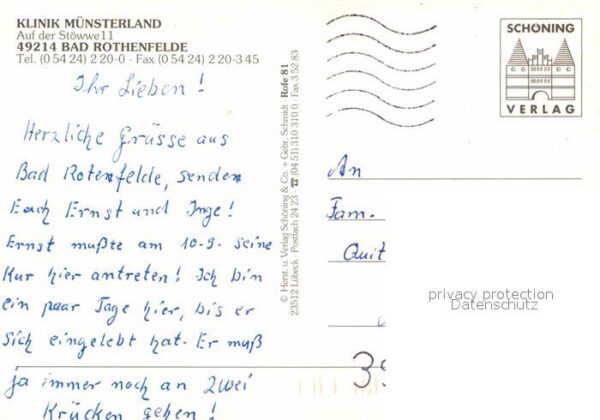 KLINIK MÜNSTERLAND
Auf der Stöwwe 11
49214 BAD ROTHENFELDE
Tel. (0 54 24) 2 20-0 · Fax (0 54 24) 2 20-3 45
Ihr Lieben!
Herzliche Grüsse aus
Bad Rotenfelde, senden
Euch Ernst und Inge!
Ernst mußte am 10.9. seine
Kur hier antreten! Ich bin
ein paar Tage hier, bis er
sich eingelebt hat. Er muß
ja immer noch an zwei
Krücken gehen!
© Herst. u. Verlag Schöning & Co. + Gebr. Schmidt · Rofe 81
23512 Lübeck · Postfach 24 23 · ☎ (04 51) 310 310 0 · Fax 3 52 83
SCHÖNING
VERLAG
An
Fam.
Quit
privacy protection
Datenschutz
39